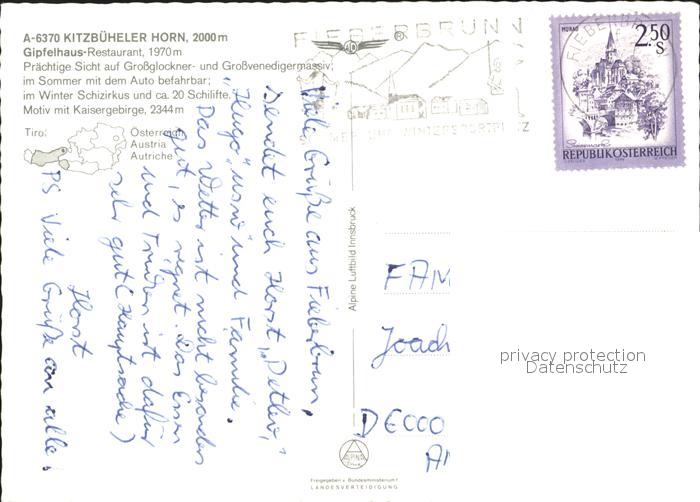 A-6370 KITZBÜHELER HORN, 2000 m
Gipfelhaus-Restaurant, 1970 m
Prächtige Sicht auf Großglockner- und Großvenedigermassiv;
im Sommer mit dem Auto befahrbar;
im Winter Schizirkus und ca. 20 Schilifte.
Motiv mit Kaisergebirge, 2344 m
Tirol
Österreich
Austria
Autriche
Viele Grüße aus Fieberbrunn,
sendet euch Horst, "Detlev",
"Hugo", und Familie.
Das Wetter ist nicht besonders
gut, es regnet. Das Essen
und Trinken ist dafür
sehr gut (Hauptsache)
Horst
PS Viele Grüße an alle.
Alpine Luftbild Innsbruck
FIEBERBRUNN
SOMMER- UND WINTERSPORTPLATZ
FIEBERBRUNN
MURAU
2.50
S
REPUBLIK ÖSTERREICH
FAM
Joach
DECCO
privacy protection
Datenschutz
ALPINE
Freigegeben v. Bundesministerium f.
LANDESVERTEIDIGUNG